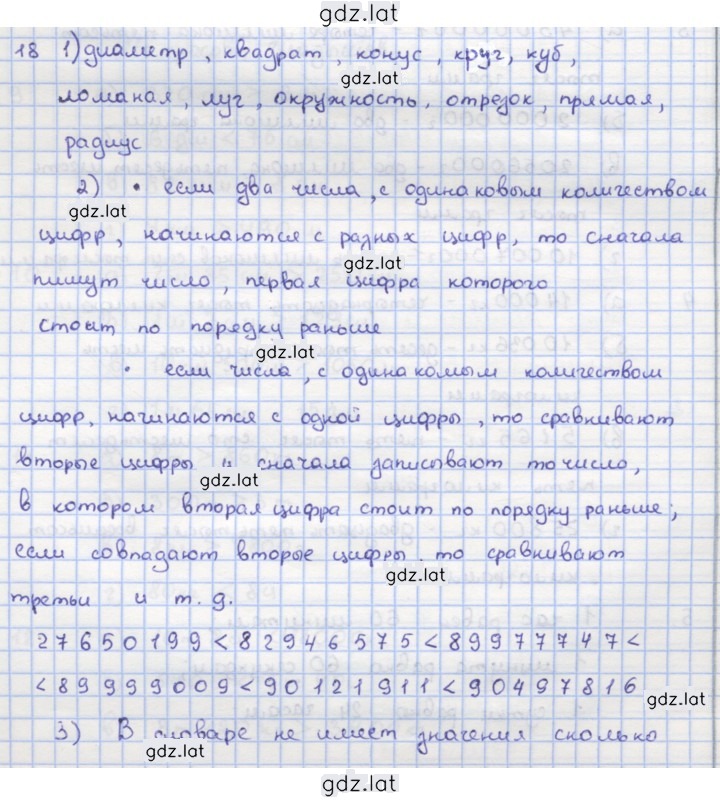 gdz.lat
18 1) диаметр, квадрат, конус, круг, куб,
gdz.lat
ломаная, луг, окружность, отрезок, прямая,
радиус
2) • если два числа, с одинаковым количеством
gdz.lat
цифр, начинаются с разных цифр, то сначала
gdz.lat
пишут число, первая цифра которого
стоит по порядку раньше
gdz.lat
• если числа, с одинакомым количеством
цифр, начинаются с одной цифры, то сравнивают
вторые цифры и сначала записывают то число,
gdz.lat
в котором вторая цифра стоит по порядку раньше;
если совпадают вторые цифры то сравнивают
gdz.lat
третьи и т. д.
27650199 < 82946575 < 899777747 <
< 89999009 < 90121911 < 90497816
gdz.lat
3) В словаре не имеет значения сколько
gdz.lat
gdz.lat